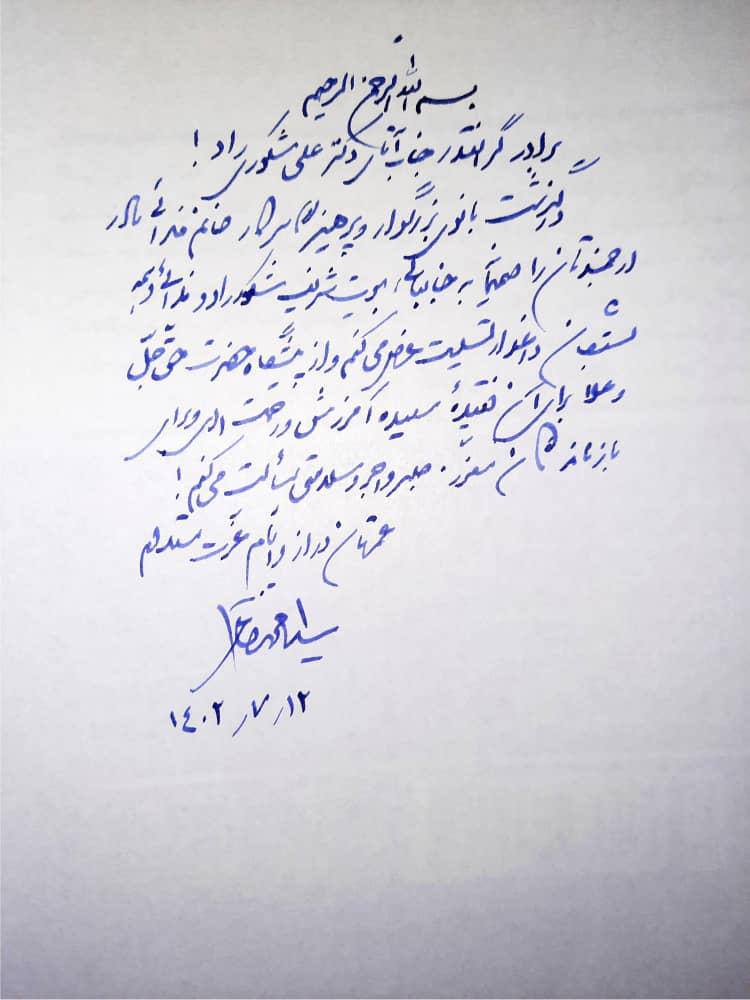 بسم الله الرحمن الرحیم
برادر گرانقدر جناب آقای دکتر علی شکوری راد!
درگذشت بانوی بزرگوار و پرهیزگار سرکار خانم فدائی مادر
ارجمندتان را صمیمانه به جنابعالی، بیت شریف شکوری‌راد و فدائی و همه
منتسبان داغدار تسلیت عرض می کنم و از پیشگاه حضرت حق جلّ
و علا برای آن فقیدهٔ سعیده آمرزش و رحمت الهی و برای
بازماندگان معزّز، صبر و اجر و سلامتی مسألت می کنم!
عمرتان دراز و ایّام عزّت مستدام
سید محمد خاتمی
۱۴۰۲ ر۷ ر۱۲